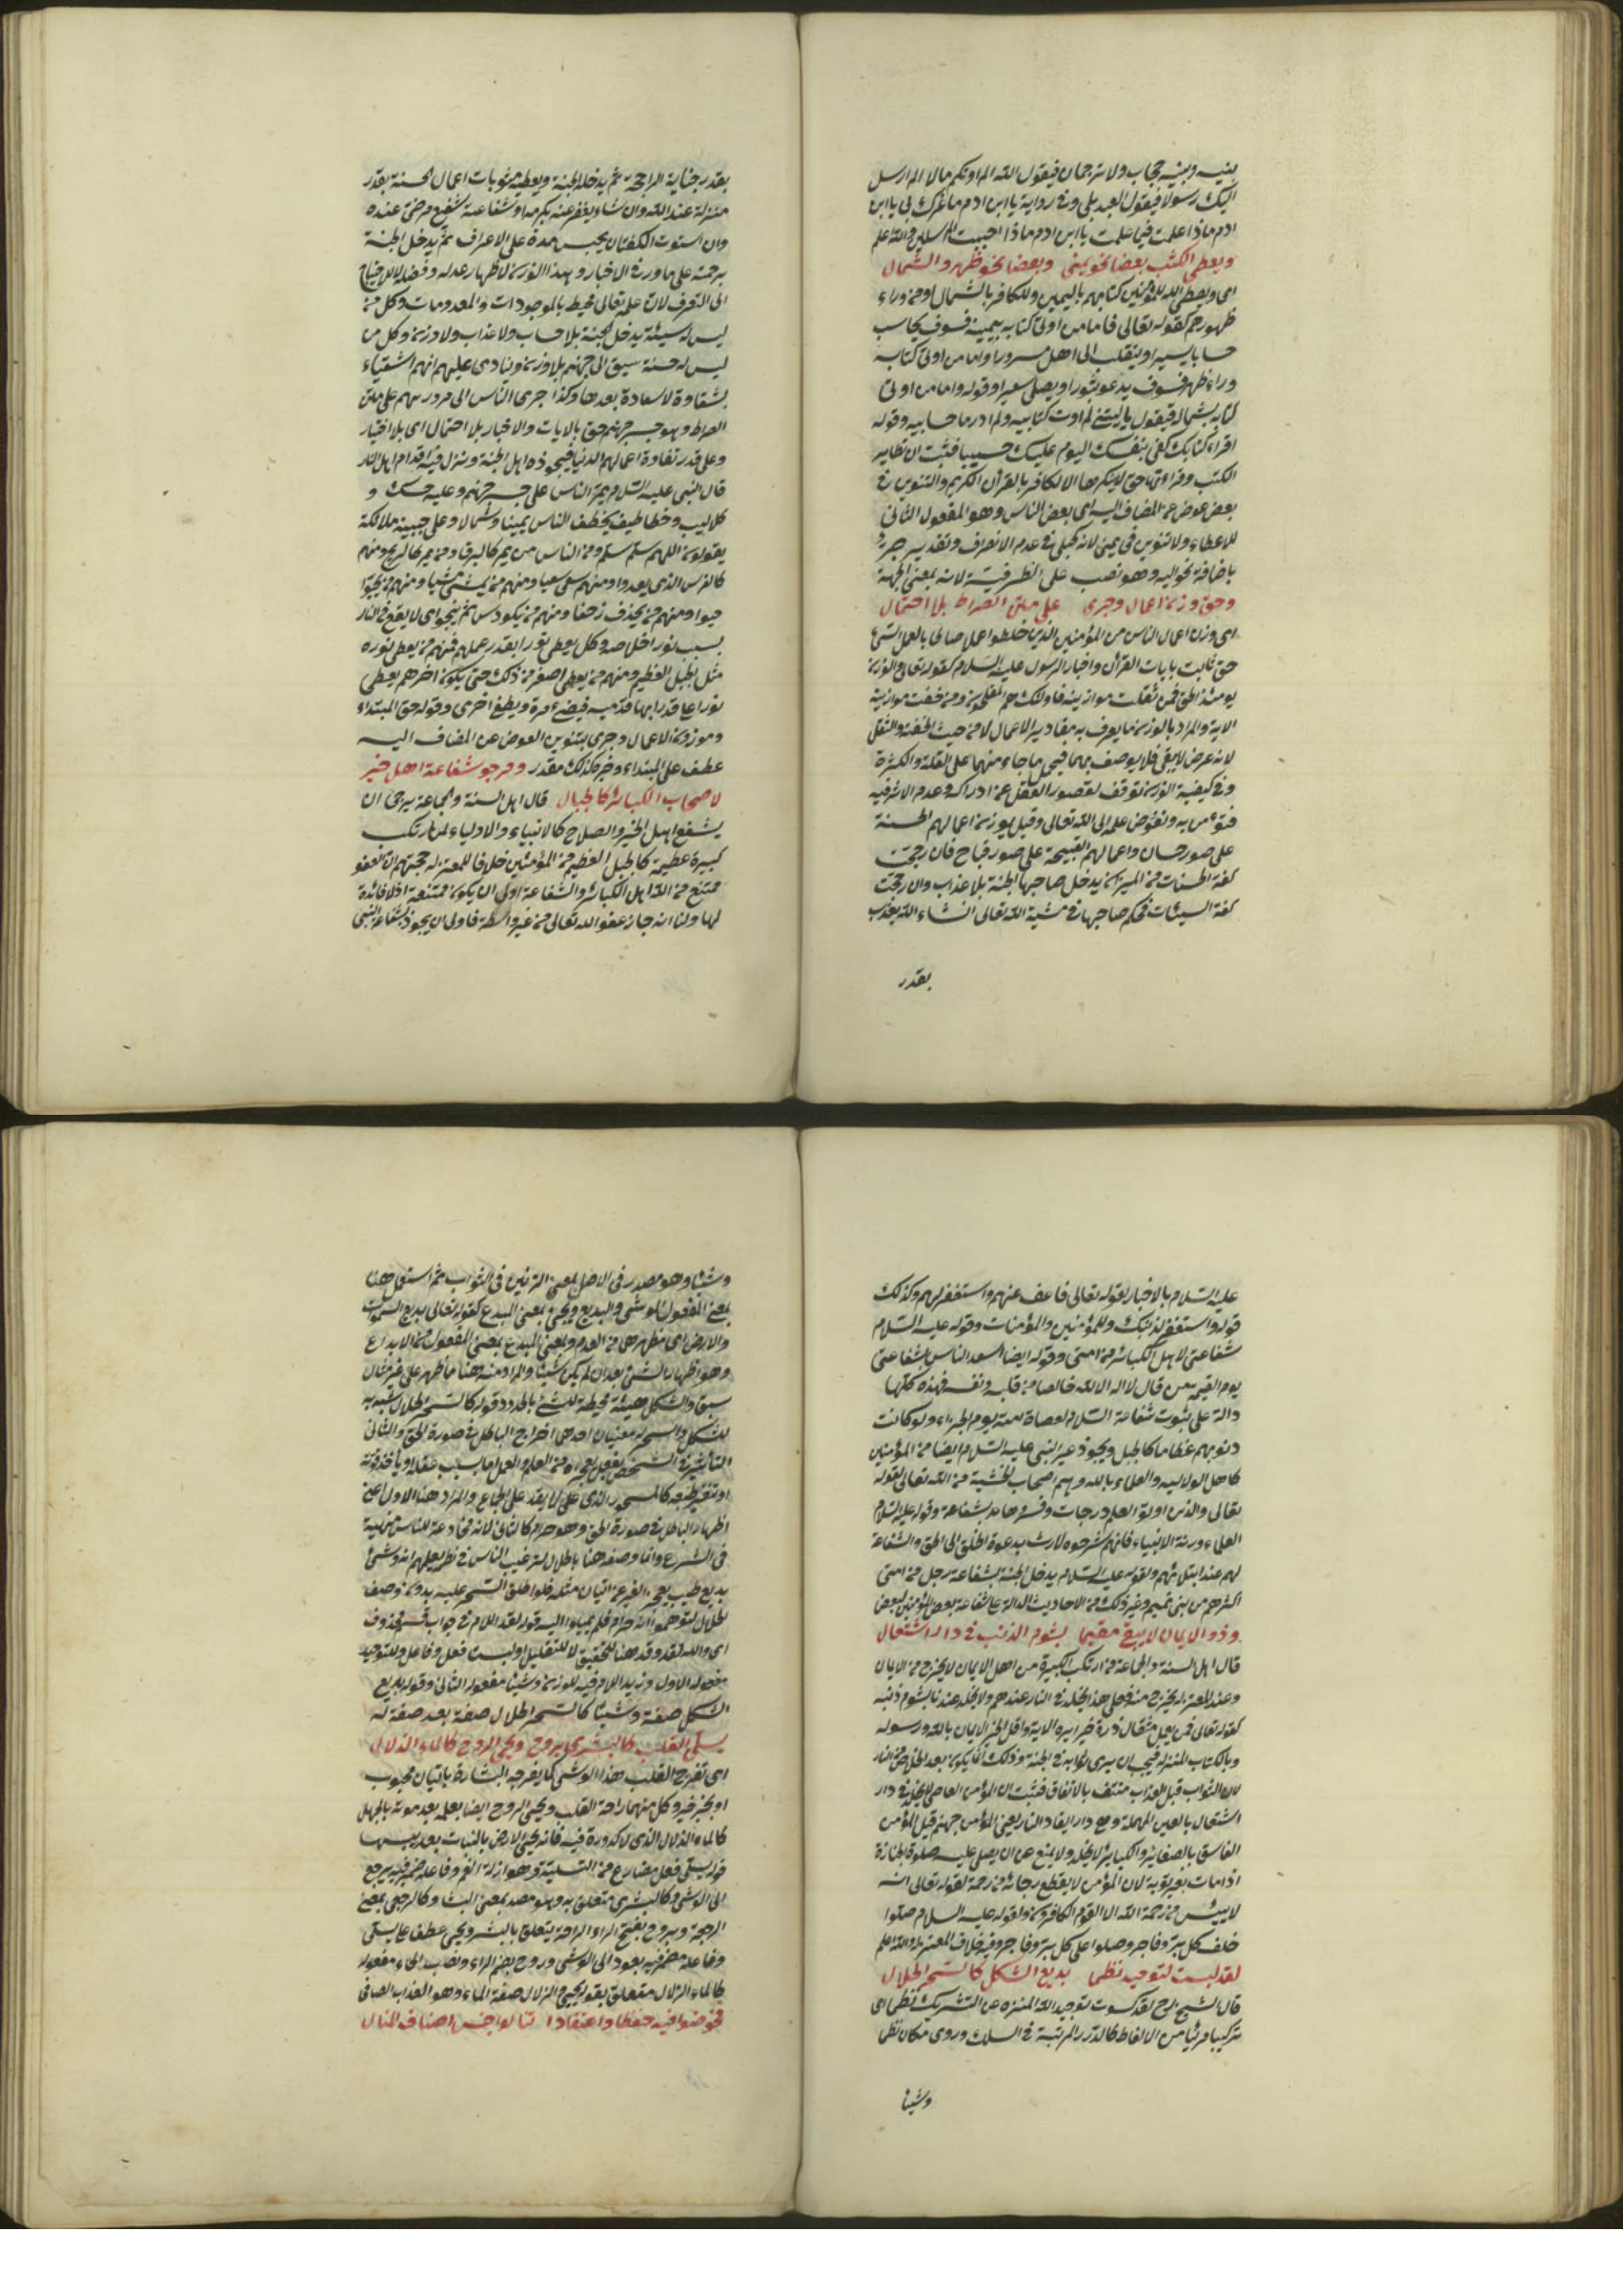 بينه وبينه حجاب ولا ترجمان فيقول الله الم اوتكم مالا الم ارسل
اليك رسولا فيقول العبد بلى وفى رواية يا ابن ادم ما غرك بى يا ابن
ادم ماذا علمت فيما علمت يا ابن ادم ماذا اجبت المرسلين والله اعلم
ويعطى الكتب بعضا نحو يمنى وبعضا نحو ظهر والشمال
اى ويعطى الله للمؤمنين كتابهم باليمين وللكافر بالشمال او من وراء
ظهورهم كقوله تعالى فاما من اوتى كتابه بيمينه فسوف يحاسب
حسابا يسيرا وينقلب الى اهله مسرورا واما من اوتى كتابه
وراء ظهره فسوف يدعو ثبورا ويصلى سعيرا وقوله واما من اوتى
كتابه بشماله فيقول يا ليتنى لم اوت كتابيه ولم ادر ما حسابيه وقوله
اقراء كتابك كفى بنفسك اليوم عليك حسيبا فثبت ان تطاير
الكتب وقراءتها حق لا ينكرها الا الكافر بالقرأن الكريم والتنوين فى
بعض عوض عن المضاف اليه اى بعض الناس وهو المفعول الثانى
للاعطاء ولا تنوين فى يمنى لانه كحبلى فى عدم الانصراف وتقديره جر
باضافة نحو اليه وهو نصب على الظرفية لانه بمعنى الجهة
وحق وزن اعمال وجرى على متن الصراط بلا اهتبال
اى وزن اعمال الناس من المؤمنين الذين خلطوا عملا صالحا بالعمل السئ
حق ثابت بايات القرأن واخبار الرسول عليه السلام كقوله تعالى والوزن
يومئذ الحق فمن ثقلت موازينه فاولئك هم المفلحون ومن خفت موازينه
الاية والمراد بالوزن ما يعرف به مقادير الاعمال لا من حيث الخفة والثقل
لانه عرض لا يبقى فلا يوصف بهما فيحمل ما جاء منهما على القلة والكثرة
وفى كيفية الوزن توقف لقصور العقل عن ادراكه وعدم الاثر فيه
فنؤمن به ونفوض علمه الى الله تعالى وقيل يوزن اعمالهم الحسنة
على صور حسان واعمالهم القبيحة على صور قباح فان رجحت
كفة الحسنات من الميزان يدخل صاحبها الجنة بلا عذاب وان رجحت
كفة السيئات فحكم صاحبها فى مشية الله تعالى ان شاء الله يعذب
بقدر
بقدر جناية الراجحة ثم يدخله الجنة ويعطيه مثوبات اعمال الحسنة بقدر
منزلة عند الله وان شاء يغفر عنه بكرمه او شفاعة شفيع مرضى عنده
وان استوت الكفتان يحبس مدة على الاعراف ثم يدخل الجنة
برحمته على ما ورد فى الاخبار وهذا الوزن لاظهار عدله وفضله لا للاحتياج
الى التعرف لان علمه تعالى محيط بالموجودات والمعدومات وكل من
ليس له سيئة يدخل الجنة بلا حساب ولا عذاب ولا وزن وكل من
ليس له حسنة سيق الى جهنم بلا وزن وينادى عليهم انهم اشقياء
بشقاوة لا سعادة بعدها وكذا جرى الناس الى مرورهم على متن
الصراط وهو جسر جهنم حق بالايات والاخبار بلا احتمال اى بلا اختيار
وعلى قدر تفاوة اعمالهم الدنيا فيجوزه اهل الجنة وتنزل فيه اقدام اهل النار
قال النبى عليه السلام يمر الناس على جسر جهنم وعليه حسك و
كلاليب وخطاطيف يخطف الناس يمينا وشمالا وعلى جنبيه ملائكة
يقولون اللهم سلم سلم ومن الناس من يمر كالبرق ومن يمر كالريح ومنهم
كالفرس الذى يعدوا ومنهم سعى سعيا ومنهم من يمشى مشيا ومنهم من يحبوا
حبوا ومنهم من يحذف زحفا ومنهم من يكردس ثم ينجو اى لا يقع فى النار
بسبب نور اخلاصه وكل يعطى نورا بقدر عملهم فمنهم من يعطى نوره
مثل الجبل العظيم ومنهم من يعطى اصغر من ذلك حتى يكون اخرهم يعطى
نورا على قدر ابهام قدميه فيضئ مرة ويطفئ اخرى وقوله حق المبتداء
وموزون الاعمال وجرى بتنوين العوض عن المضاف اليه
عطف على المبتداء وخبر كذلك مقدر ومرجو شفاعة اهل خير
لاصحاب الكبائر كالجبال قال اهل السنة والجماعة يرجى ان
يشفع اهل الخير والصلاح كالانبياء والاولياء لمن ارتكب
كبيرة عظيمة كالجبل العظيم من المؤمنين خلافا للمعتزلة حجتهم ان العفو
ممتنع من الله اهل الكبائر والشفاعة اولى ان يكون ممتنعة اذ لا فائدة
لها ولنا انه جاز عفو الله تعالى من غير واسطة فاولى ان يجوز بشفاعة النبى
عليه السلام بالاخبار بقوله تعالى فاعف عنهم واستغفر لهم وكذلك
قوله واستغفر لذنبك وللمؤمنين والمؤمنات وقوله عليه السلام
شفاعتى لاهل الكبائر من امتى وقوله ايضا اسعد الناس بشفاعتى
يوم القيمة من قال لا اله الا الله خالصا من قلبه ونفسه فهذه كلها
دالة على ثبوت شفاعة السلام لعصاة امته يوم الجزاء ولو كانت
ذنوبهم عظاما كالجبل ويجوز غير النبى عليه السلام ايضا من المؤمنين
كاهل الولاية والعلماء بالله وهم اصحاب الخشية من الله تعالى لقوله
تعالى والذين اوتوا العلم درجات وفسرها بشفاعة وقوله عليه السلام
العلماء ورثة الانبياء فانهم شرحوه لارث بدعوة الخلق الى الحق والشفاعة
لهم عند ابتلائهم ولقوله عليه السلام يدخل الجنة بشفاعة رجل من امتى
اكثرهم من بنى تميم وغير ذلك من الاحاديث الدالة على شفاعة بعض المؤمنين لبعض
وذو الايمان لا يبقى مقيما بشوم الذنب فى دار اشتعال
قال اهل السنة والجماعة من ارتكب الكبيرة من اهل الايمان لا يخرج من الايمان
وعند المعتزلة يخرج منه فعلى هذا يخلد فى النار عندهم ولا يخلد عندنا بشوم ذنبه
لقوله تعالى فمن يعمل مثقال ذرة خيرا يره الاية واقل الخير الايمان بالله ورسوله
وبالكتاب المنزلة فيجب ان يرى ثوابه فى الجنة وذلك انما يكون بعد الخلاص من النار
لان الثواب قبل العذاب منتف بالاتفاق فثبت ان المؤمن العاصى لا يخلد فى دار
اشتعال بالعين المهملة وهى دار ايقاد النار يعنى المؤمن جهنم قيل المؤمن
الفاسق بالصغاير والكباير لا يخلد ولا يمنع عن ان يصلى عليه صلوة الجنازة
اذا مات بغير توبة لان المؤمن لا يقطع رجائه من رحمة لقوله تعالى انه
لا يبئس من رحمة الله الا القوم الكافرون ولقوله عليه السلام صلوا
خلف كل بر وفاجر وصلوا على كل بر وفاجر وفيه خلاف المعتزلة والله اعلم
لقد لبست لتوحيد نظما بديع الشكل كالسحر الحلال
قال الشيخ رح لقد كسوت توحيد الله المنزه عن التشريك نظما اى
تركيبا مرتبا من الالفاظ كالدرر المرتبة فى السلك وروى مكان نظما
وشيا
وشيا وهو مصدر فى الاصل بمعنى التزئين فى الثواب ثم استعمل هنا
بمعنى المفعول الموشى والبديع ويجئ بمعنى المبدع كقوله تعالى بديع السموات
والارض اى مظهرهما من العدم وبمعنى المبدع بمعنى المفعول من الابداع
وهو اظهار الشئ بعد ان لم يكن شيئا والمراد منه هنا ما ظهر على غير مثال
سبق والشكل هيئة محيطة للشئ بالحدود قوله كالسحر الحلال شبه به
للشكل والسحر له معنيان احدهما اخراج الباطل فى صورة الحق والثانى
التأثير فى الشخص بفعل يعجزه من العلم والعمل اما بسبب عقله او يأخذ قوته
او تغير طبعه كالمسحور الذى على لا يقدر على الجماع والمراد هنا الاول اعنى
اظهار الباطل فى صورة الحق وهو حرام كالثانى لانه مخادعة للناس منهية
فى الشرع وانما وصفه هنا بالحلال لترغيب الناس فى نظم يعلمهم انه وشئ
بديع طيب يعجز الغير عن اتيان مثله فلو اطلق السحر عليه بدون وصف
الحلال لتوهموا انه حرام فلم يميلوا اليه قوله لقد اللام فى جواب قسم محذوف
اى والله لقد وقد هنا للتحقيق لا للتقليل ولبست فعل وفاعل وللتوحيد
مفعوله الاول وزيد اللام فيه للوزن وشيئا مفعوله الثانى وقوله بديع
الشكل صفة وشيئا كالسحر الحلال صفة بعد صفة له
يسلى القلب كالبشرى بروح ويحى الروح كالماء الزلال
اى تفرح القلب بهذا الوشى كما يفرحه البشارة باتيان محبوب
او بخبر خير وكل منهما راحة القلب ويحيى الروح ايضا بعلمه بعد موته بالجهل
كالماء الزلال الذى لا كدورة فيه فانه يحيى الارض بالنبات بعد يبسها
قوله يسلى فعل مضارع من التسلية وهو ازالة الغم وفاعله ضمير فيه يرجع
الى الوشى وكالبشرى متعلق به وهو مصدر بمعنى البشارة كالرجعى بمعنى
الرجعة وبروح بفتح الراء الراحة يتعلق بالبشرى ويحى عطف على يسلى
وفاعله مضمر فيه يعود الى الوشى وروح بضم الراء ونصب الحاء مفعوله
كالماء الزلال متعلق بقوله يحيى والزلال صفة الماء وهو العذاب الصافى
فخوضوا فيه حفظا واعتقادا تنالوا جنس اصناف المنال